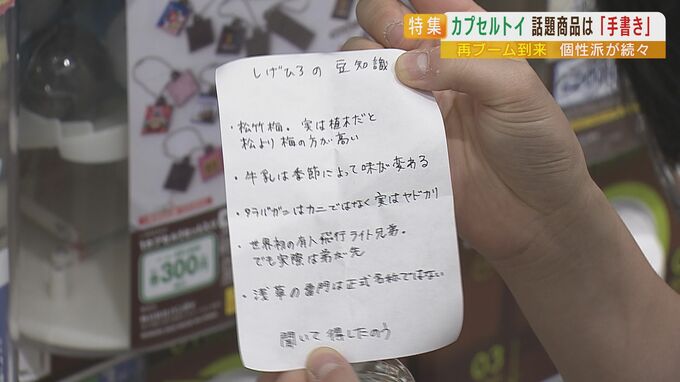 特集 カプセルトイ 話題商品は「手書き」
再ブーム到来 個性派が続々
しげひろの 豆知識
・松竹梅。実は植木だと
松より梅の方が高い
・牛乳は季節によって味が変わる
・タラバガニはカニではなく実はヤドカリ
・世界初の有人飛行ライト兄弟。
でも実際は弟が先
・浅草の雷門は正式名称ではない
聞いて得したのう
300円